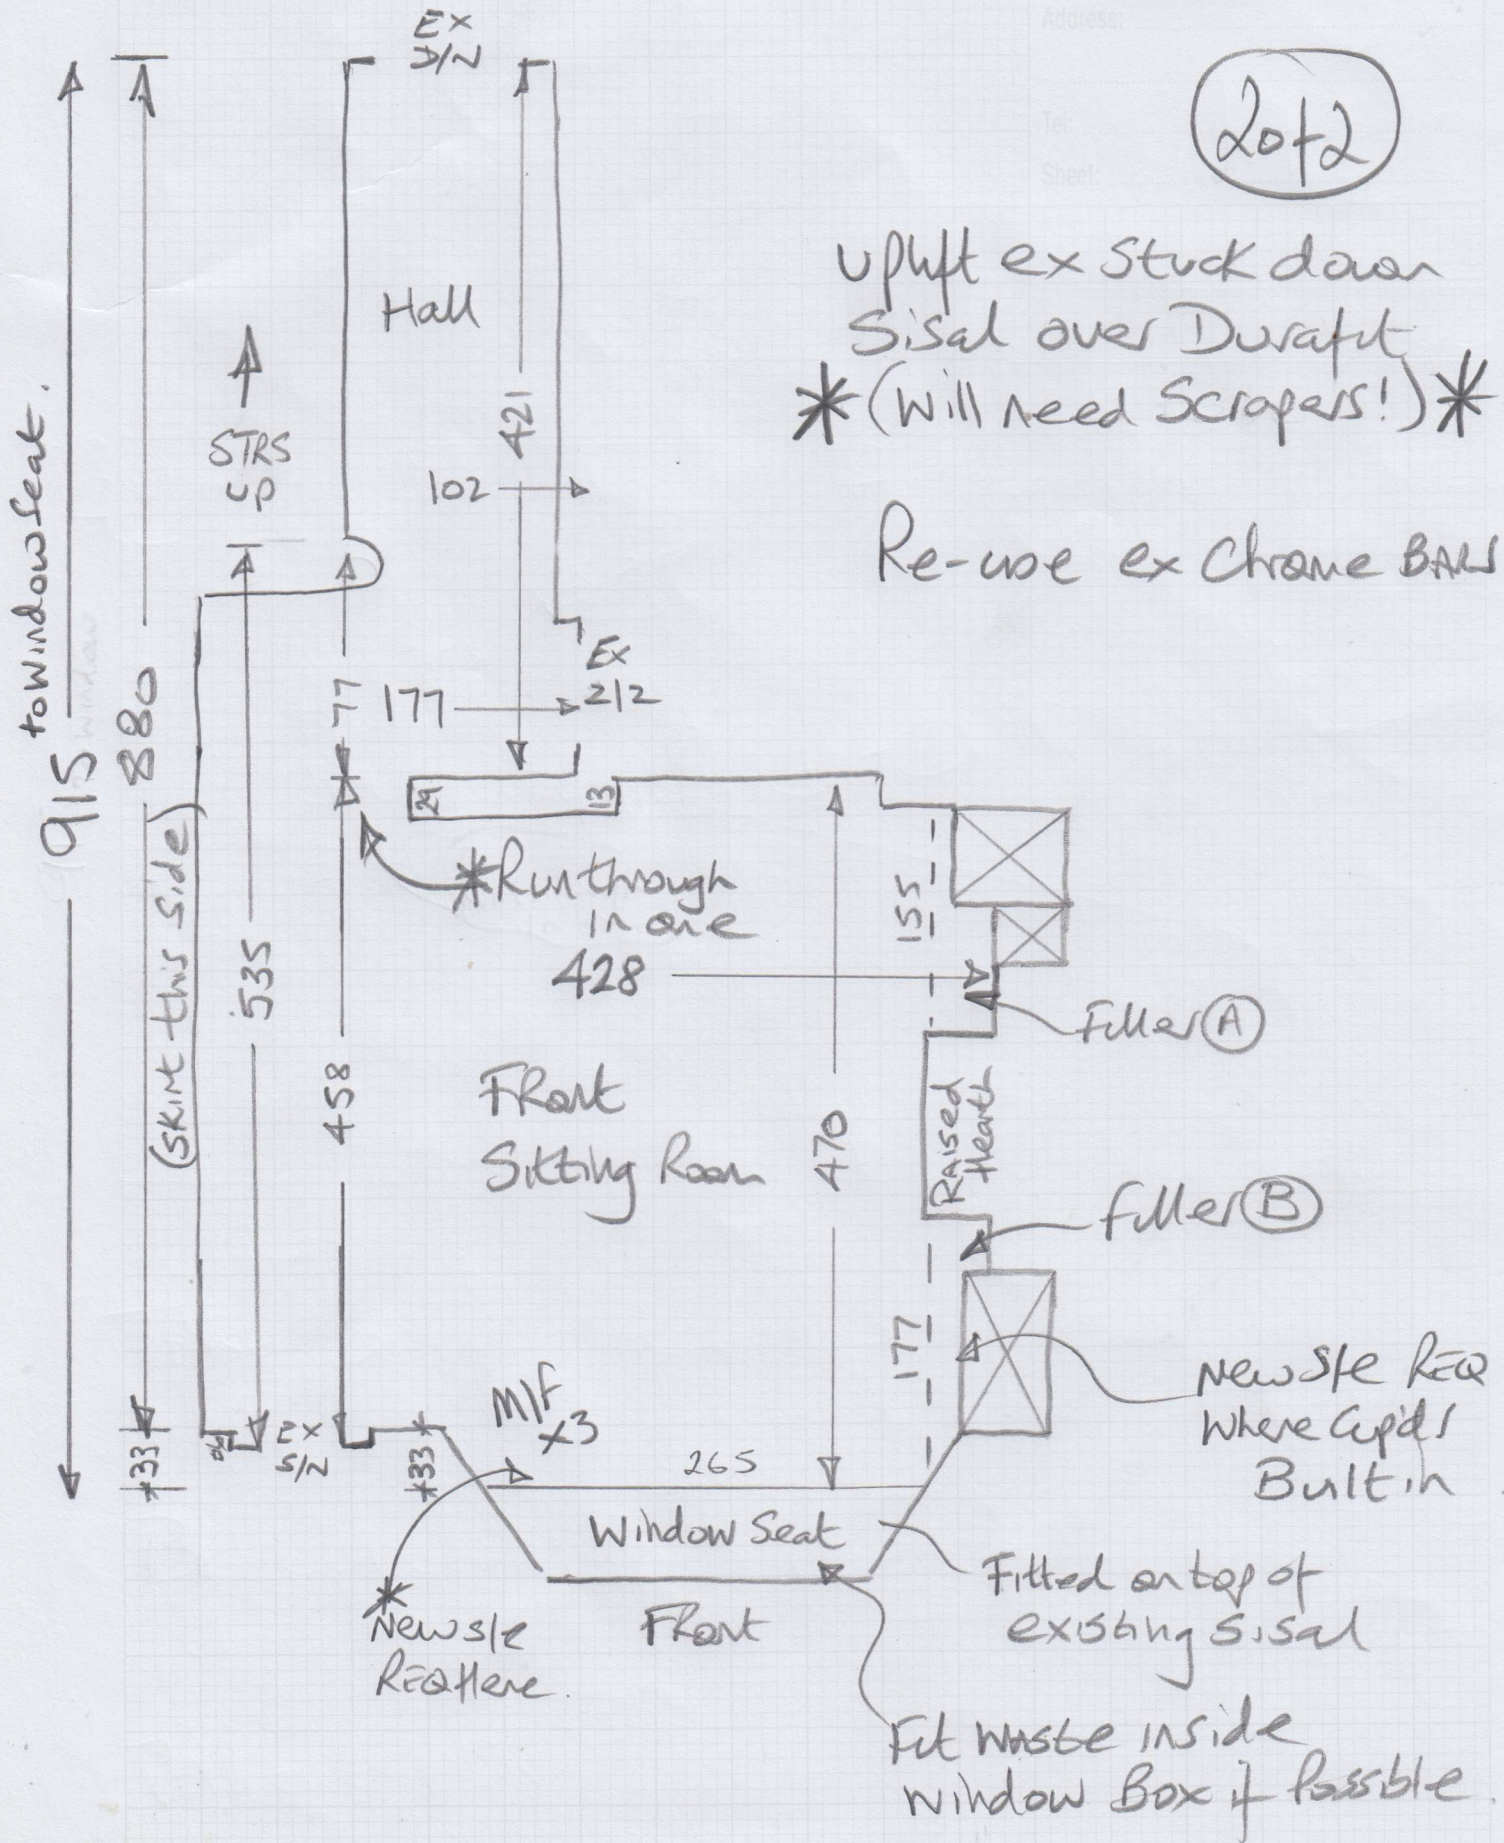 Address:
Tel:
Sheet:
2of2
EX
D/N
uplift ex stuck down
Sisal over Durafit
*(Will need Scrapers!)*
Re-use ex Chrome BARS
Hall
STRS
UP
421
102
to Window Seat.
window
915
880
(SKIRT this side)
535
77
177
EX
2/2
29
13
*Run through
in one
428
155
Filler A
458
FRont
Sitting Room
470
RAISED
Hearth
Filler B
177
New s/e REQ
Where Cup'ds
Built in.
*33
EX
S/N
*33
M/F
x3
265
Window Seat
Fitted on top of
existing Sisal
*
New s/e
REQ Here.
FRont
Fit Waste inside
Window Box if Possible.